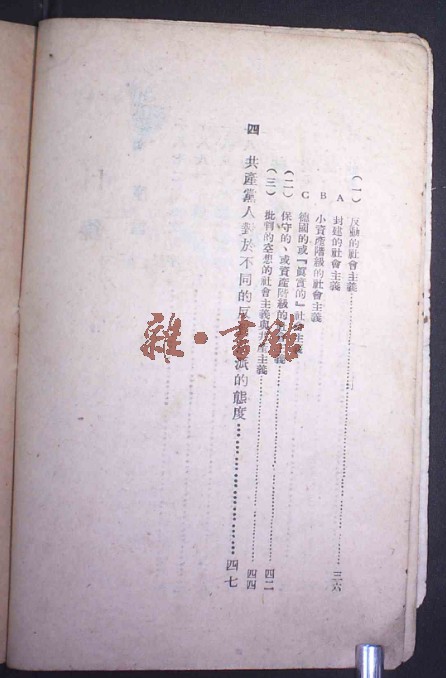 （一）反動的社會主義……三六
A 封建的社會主義
B 小資產階級的社會主義
C 德國的或『眞實的』社 主義
（二）保守的、或資產階級的 義……四二
（三）批判的空想的社會主義與 主義……四四
四 共產黨人對於不同的 派的態度……四七
雜·書館